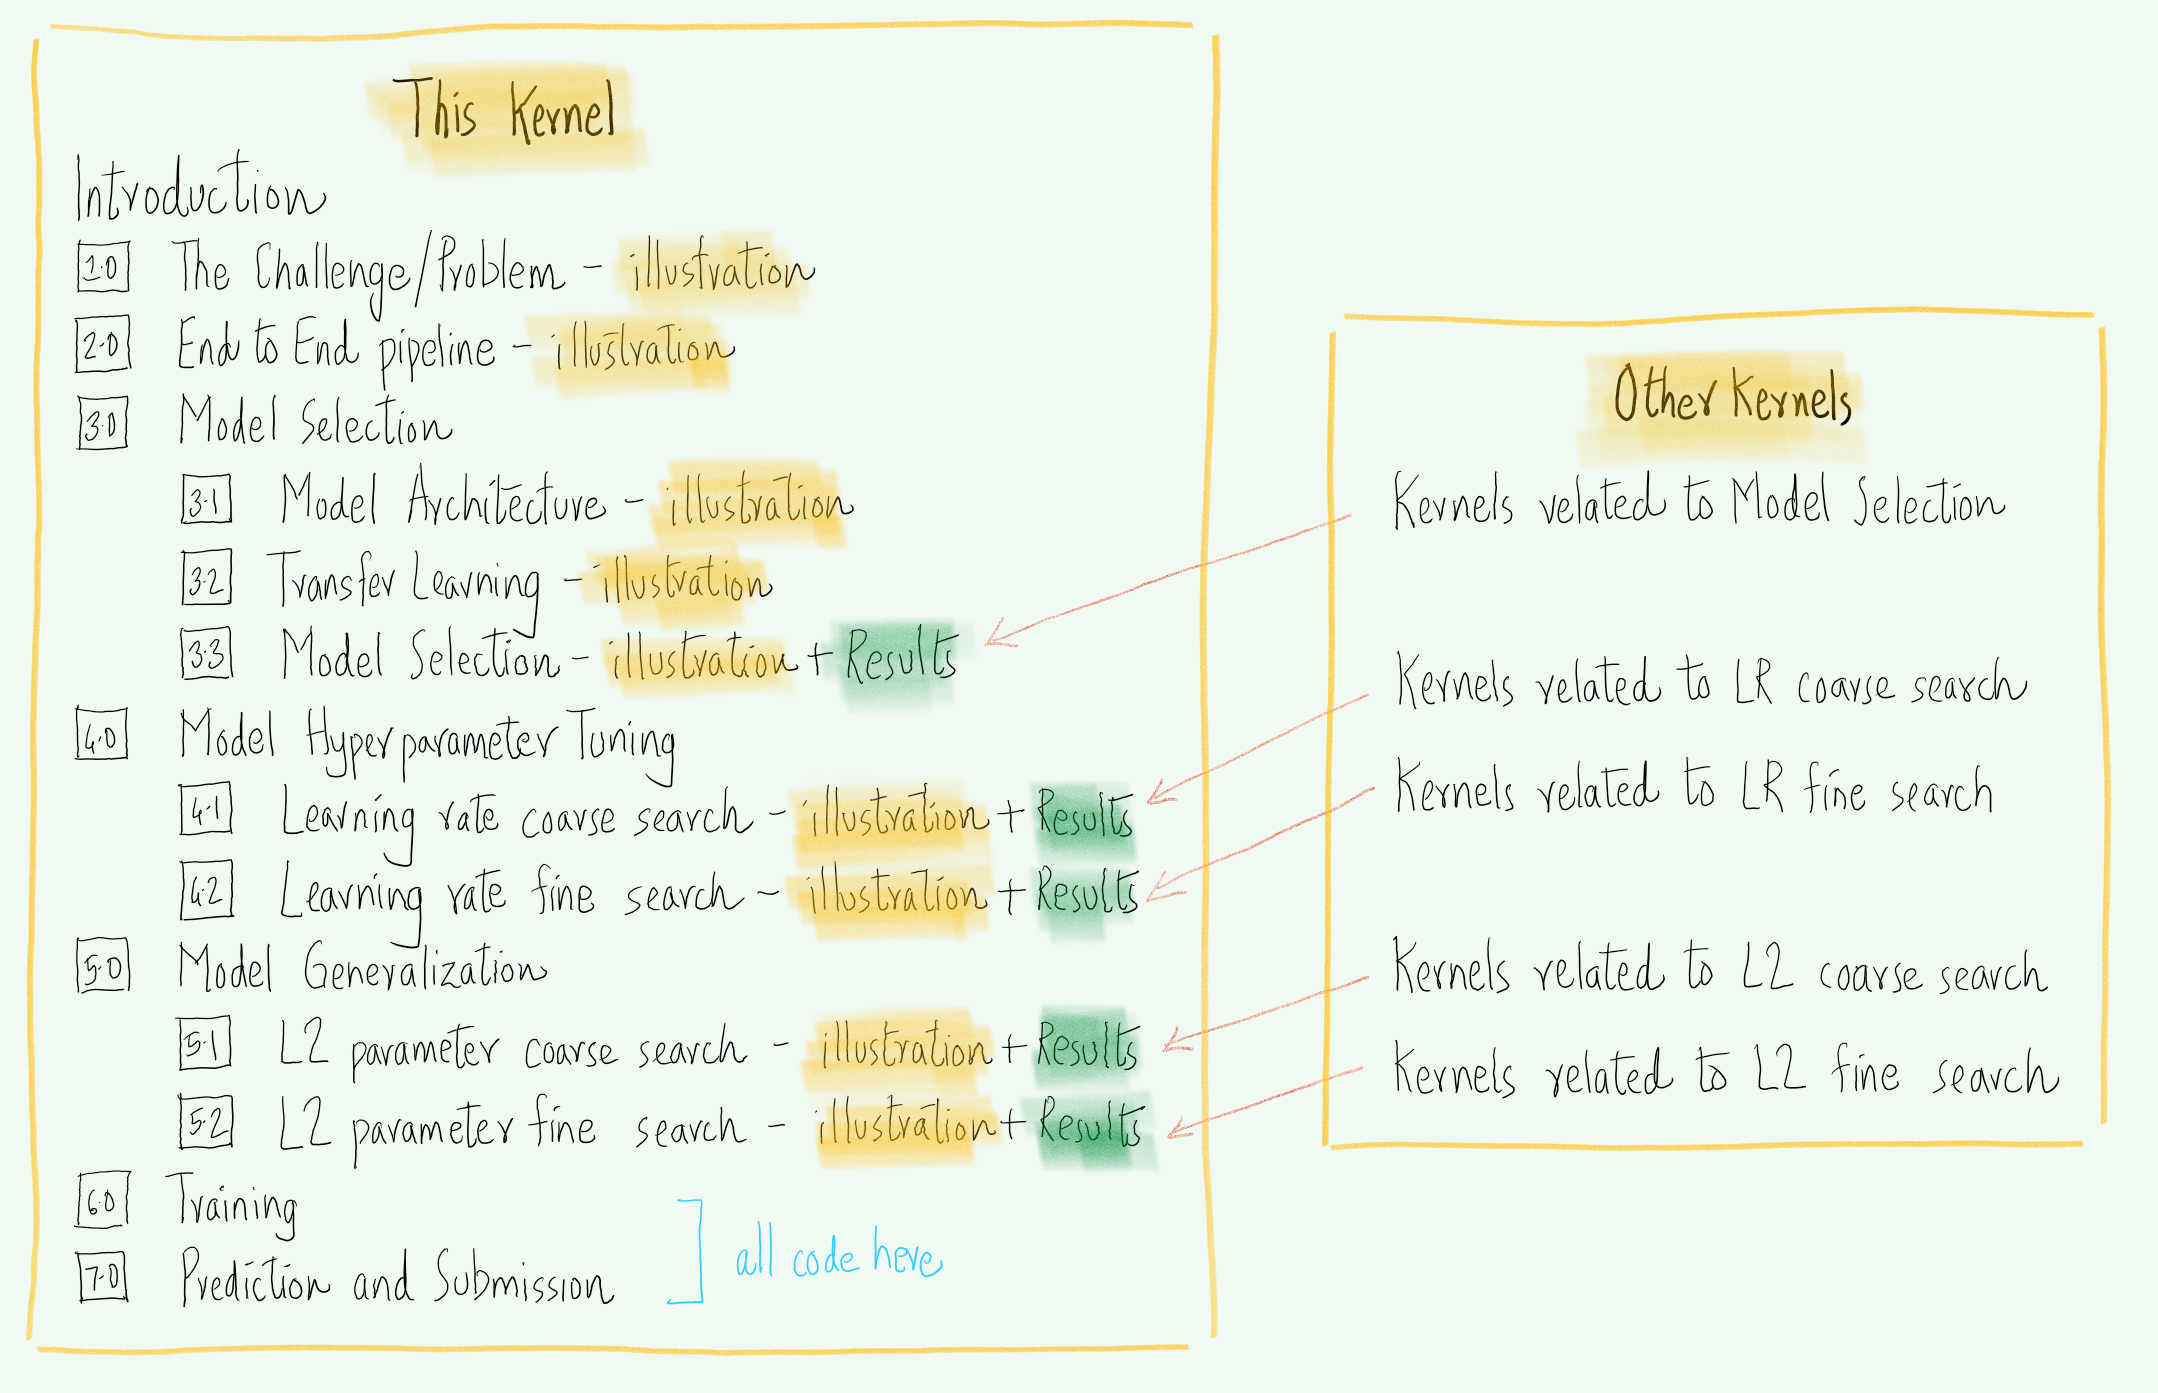 This Kernel
Introduction
1.0 The Challenge/Problem - illustration
2.0 End to End pipeline - illustration
3.0 Model Selection
3.1 Model Architecture - illustration
3.2 Transfer Learning - illustration
3.3 Model Selection - illustration + Results
4.0 Model Hyperparameter Tuning
4.1 Learning rate coarse search - illustration + Results
4.2 Learning rate fine search - illustration + Results
5.0 Model Generalization
5.1 L2 parameter coarse search - illustration + Results
5.2 L2 parameter fine search - illustration + Results
6.0 Training
7.0 Prediction and Submission
all code here
Other Kernels
Kernels related to Model Selection
Kernels related to LR coarse search
Kernels related to LR fine search
Kernels related to L2 coarse search
Kernels related to L2 fine search